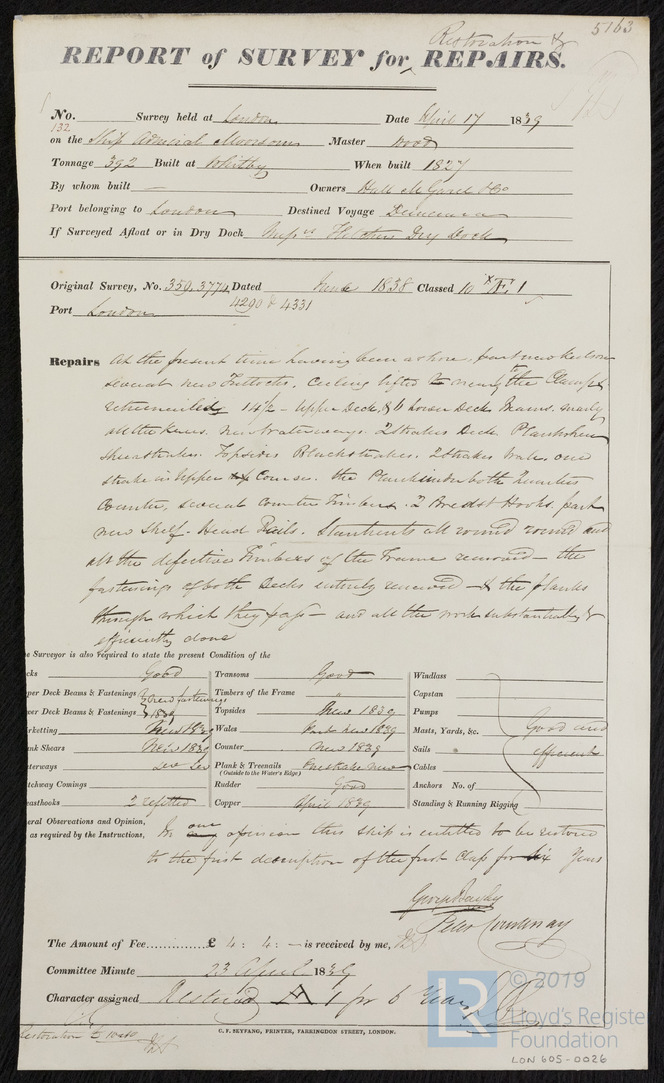 5163
Restoration &
REPORT of SURVEY for REPAIRS.
No. Survey held at London Date April 17 1839
132
on the Ship Admiral Moorsom Master
Tonnage 392 Built at Whitby When built 1827
By whom built — Owners Hall McGarel & Co
Port belonging to London Destined Voyage Demerara
If Surveyed Afloat or in Dry Dock Fletchers Dry Dock
Original Survey, No. 359, 3774, Dated June 1838 Classed 10 Æ 1
4290 & 4331
Port London
Repairs At the present time having been ashore, part new keelson
several new Futtocks, Ceiling lifted to nearly the Clamps
14½ - Upper Deck, & 6 Lower Deck Beams. nearly
all the Knees. new Waterways. 2 Strakes Deck. Planksheer
Sheerstrakes. Topsides Blackstrakes. 2 Strakes Wale, one
strake in Upper Course. the Plank under both Quarters
Counter, several counter Timbers. 2 Breast Hooks. part
new Shelf. Head Rails. Stanchents all round and
all the defective Timbers of the Frame renewed — the
fastenings of both Decks entirely renewed — & the planks
through which they pass — and all the work substantially &
efficiently done
e Surveyor is also required to state the present Condition of the
cks Good Transoms Good Windlass
per Deck Beams & Fastenings new fastenings Timbers of the Frame " Capstan
wer Deck Beams & Fastenings 1839 Topsides New 1839 Pumps
rketting New 1839 Wales Part new 1839 Masts, Yards, &c. Good and
nk Shears New 1839 Counter New 1839 Sails efficient
terways Plank & Treenails One strake new Cables
(Outside to the Water's Edge)
tchway Comings Rudder Good Anchors No. of
easthooks 2 refitted Copper April 1839 Standing & Running Rigging
eral Observations and Opinion, In our opinion this ship is entitled to be restored
as required by the Instructions,
to the first description of the first Class for six Years
George Bayley
Peter Courtenay
The Amount of Fee............£ 4 : 4 : — is received by me,
Committee Minute 23 April 1839
Character assigned Restored A 1 for 6 Years
C. F. SEYFANG, PRINTER, FARRINGDON STREET, LONDON.
Restoration
LR
© 2019
Lloyd's Register
Foundation
LON 605-0026